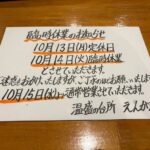 臨時休業のお知らせ
10月13日(月)定休日
10月14日(火)臨時休業
とさせていただきます。
ご迷惑をお掛けいたしますが、ご了承のほどお願いいたします
10月15日(水)より通常営業させていただきます。
温盛の台所 えんか